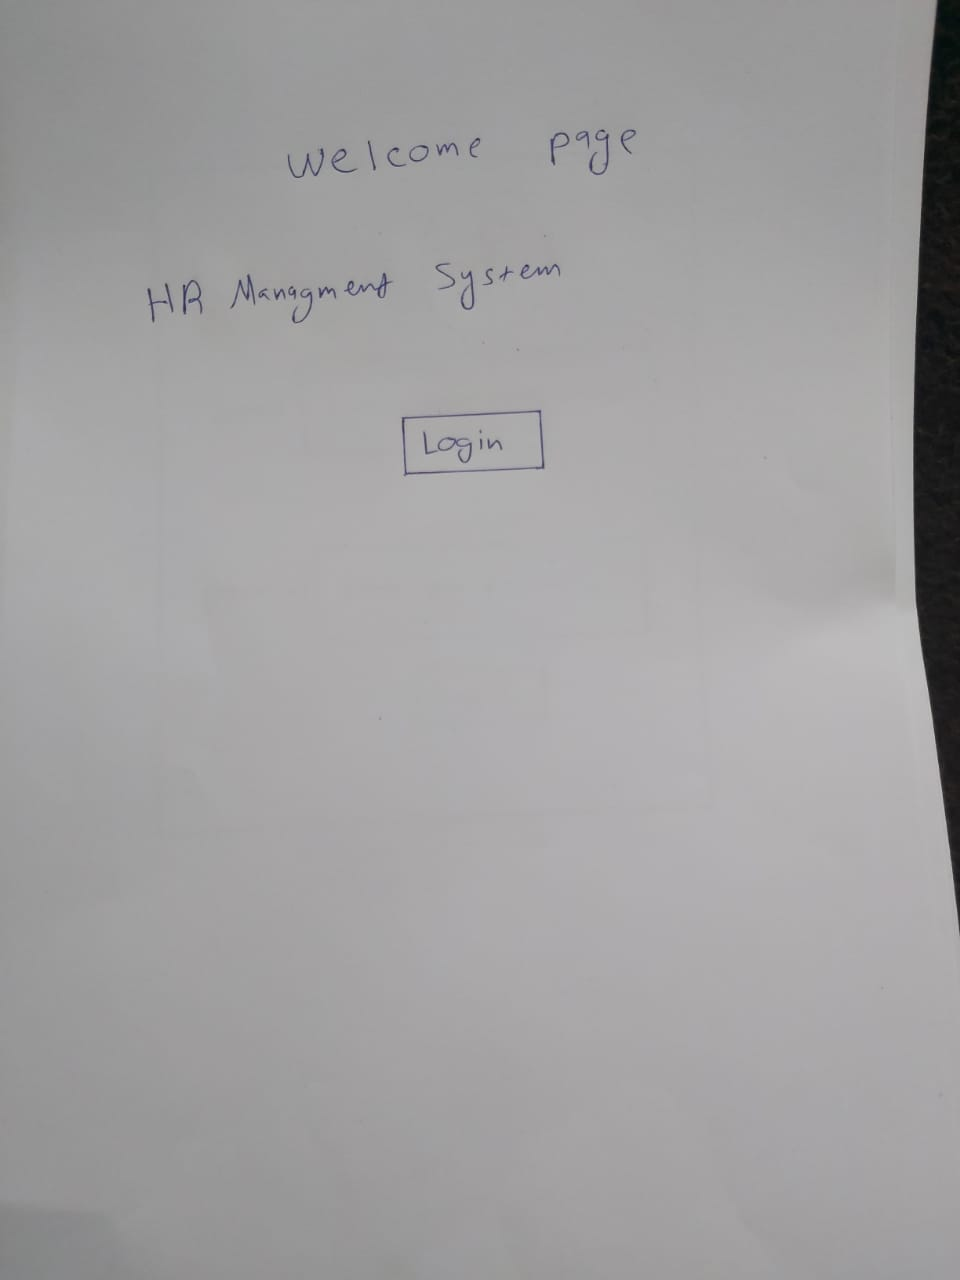 Welcome page
HR Managment System
Login